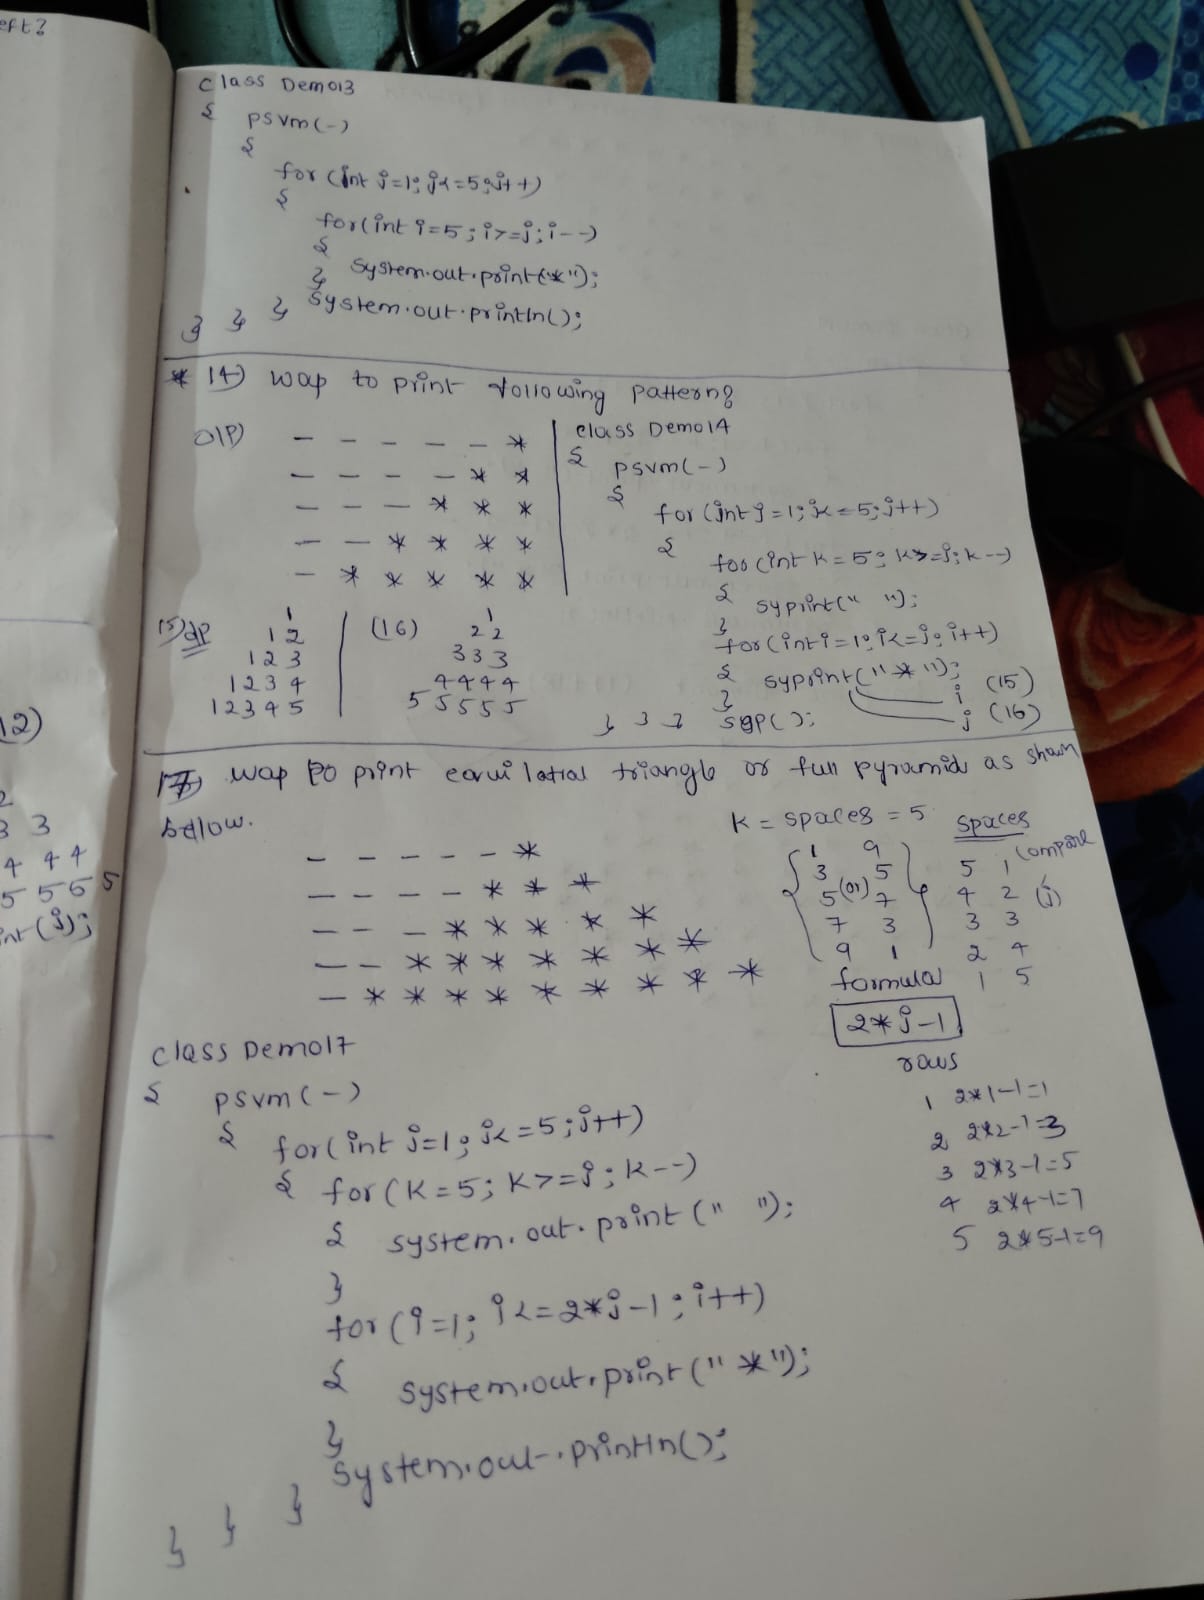 eft?
class Demo13
{
psvm(-)
{
for (int j=1; j<=5; j++)
{
for(int i=5; i>=j; i--)
{
System.out.print("*");
}
System.out.println();
} } }
* 14) wap to print following pattern?
O/P)
- - - - - *
- - - - * *
- - - * * *
- - * * * *
- * * * * *
class Demo14
{
psvm(-)
{
for (int j=1; j<=5; j++)
{
for (int k=5; k>=j; k--)
{ syprint(" ");
}
for (int i=1; i<=j; i++)
{ syprint("*");
i (15)
} j (16)
} } } sop();
15) o/p
1
1 2
1 2 3
1 2 3 4
1 2 3 4 5
(16)
1
2 2
3 3 3
4 4 4 4
5 5 5 5 5
17) wap to print equilatral triangle or full pyramid as shown
bellow.
- - - - - *
- - - - * * *
- - - * * * * *
- - * * * * * * *
- * * * * * * * * *
k = spaces = 5
1 9
3 5
5 (or) 7
7 3
9 1
formula
2*j-1
spaces
compare
(j)
5 1
4 2
3 3
2 4
1 5
rows
1 2*1-1=1
2 2*2-1=3
3 2*3-1=5
4 2*4-1=7
5 2*5-1=9
class Demo17
{
psvm(-)
{
for(int j=1; j<=5; j++)
{ for (k=5; k>=j; k--)
{ system.out.print(" ");
}
for (i=1; i<=2*j-1; i++)
{ system.out.print("*");
}
System.out.println();
} } }
12)
2
3 3
4 4 4
5 5 5 5
int(j);